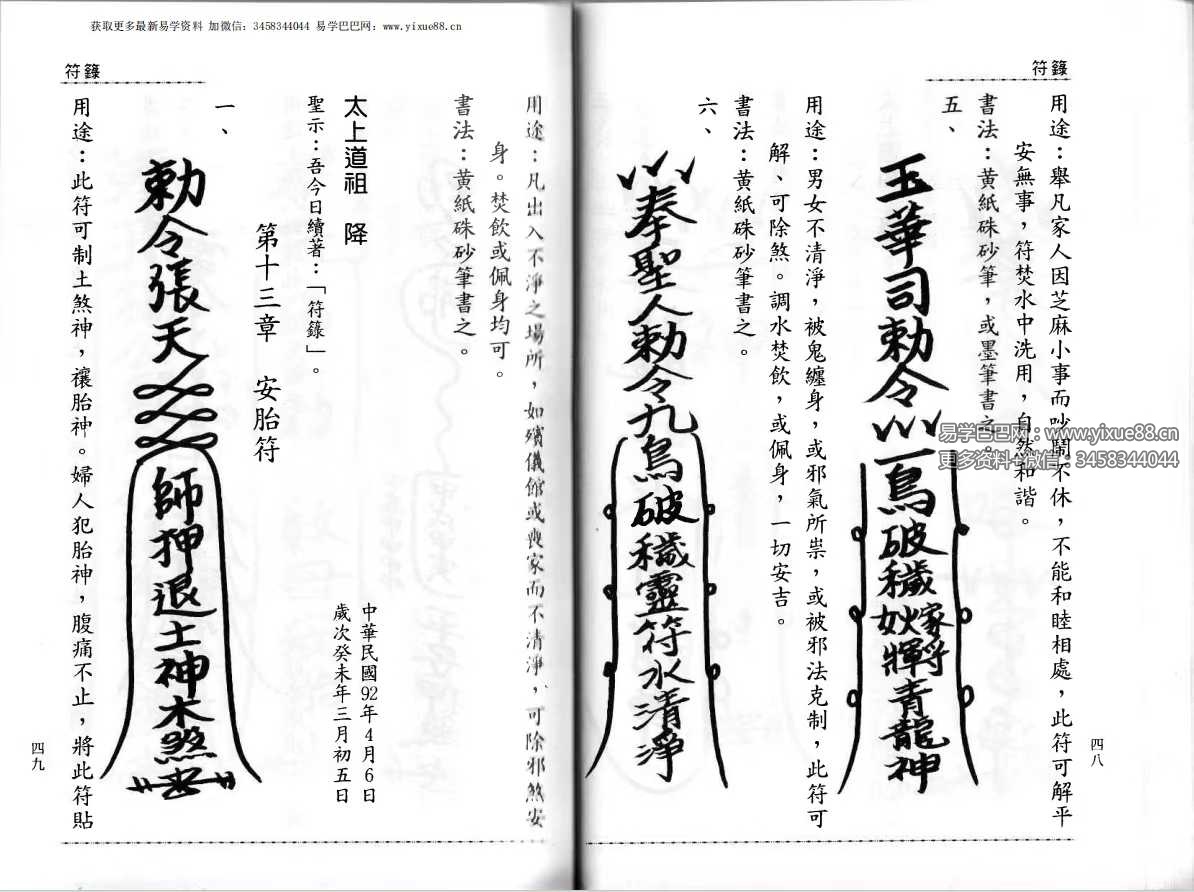 获取更多最新易学资料 加微信：3458344044 易学巴巴网：www.yixue88.cn
符籙
用途：舉凡家人因芝麻小事而吵鬧不休，不能和睦相處，此符可解平
安無事，符焚水中洗用，自然和諧。
書法：黃紙硃砂筆，或墨筆書之。
五、
玉華司勅令
一烏破穢
青龍神
用途：男女不清淨，被鬼纏身，或邪氣所祟，或被邪法克制，此符可
解、可除煞。調水焚飲，或佩身，一切安吉。
書法：黃紙硃砂筆書之。
六、
奉聖人勅令九烏破穢靈符水清淨
四八
易学巴巴网：www.yixue88.cn
更多资料+微信：3458344044
符籙
用途：凡出入不淨之場所，如殯儀館或喪家而不清淨，可除邪煞安
身。焚飲或佩身均可。
書法：黃紙硃砂筆書之。
太上道祖　降
聖示：吾今日續著：「符籙」。
中華民國92年4月6日
歲次癸未年三月初五日
第十三章　安胎符
一、
勅令張天師押退土神木煞
用途：此符可制土煞神，禳胎神。婦人犯胎神，腹痛不止，將此符貼
四九